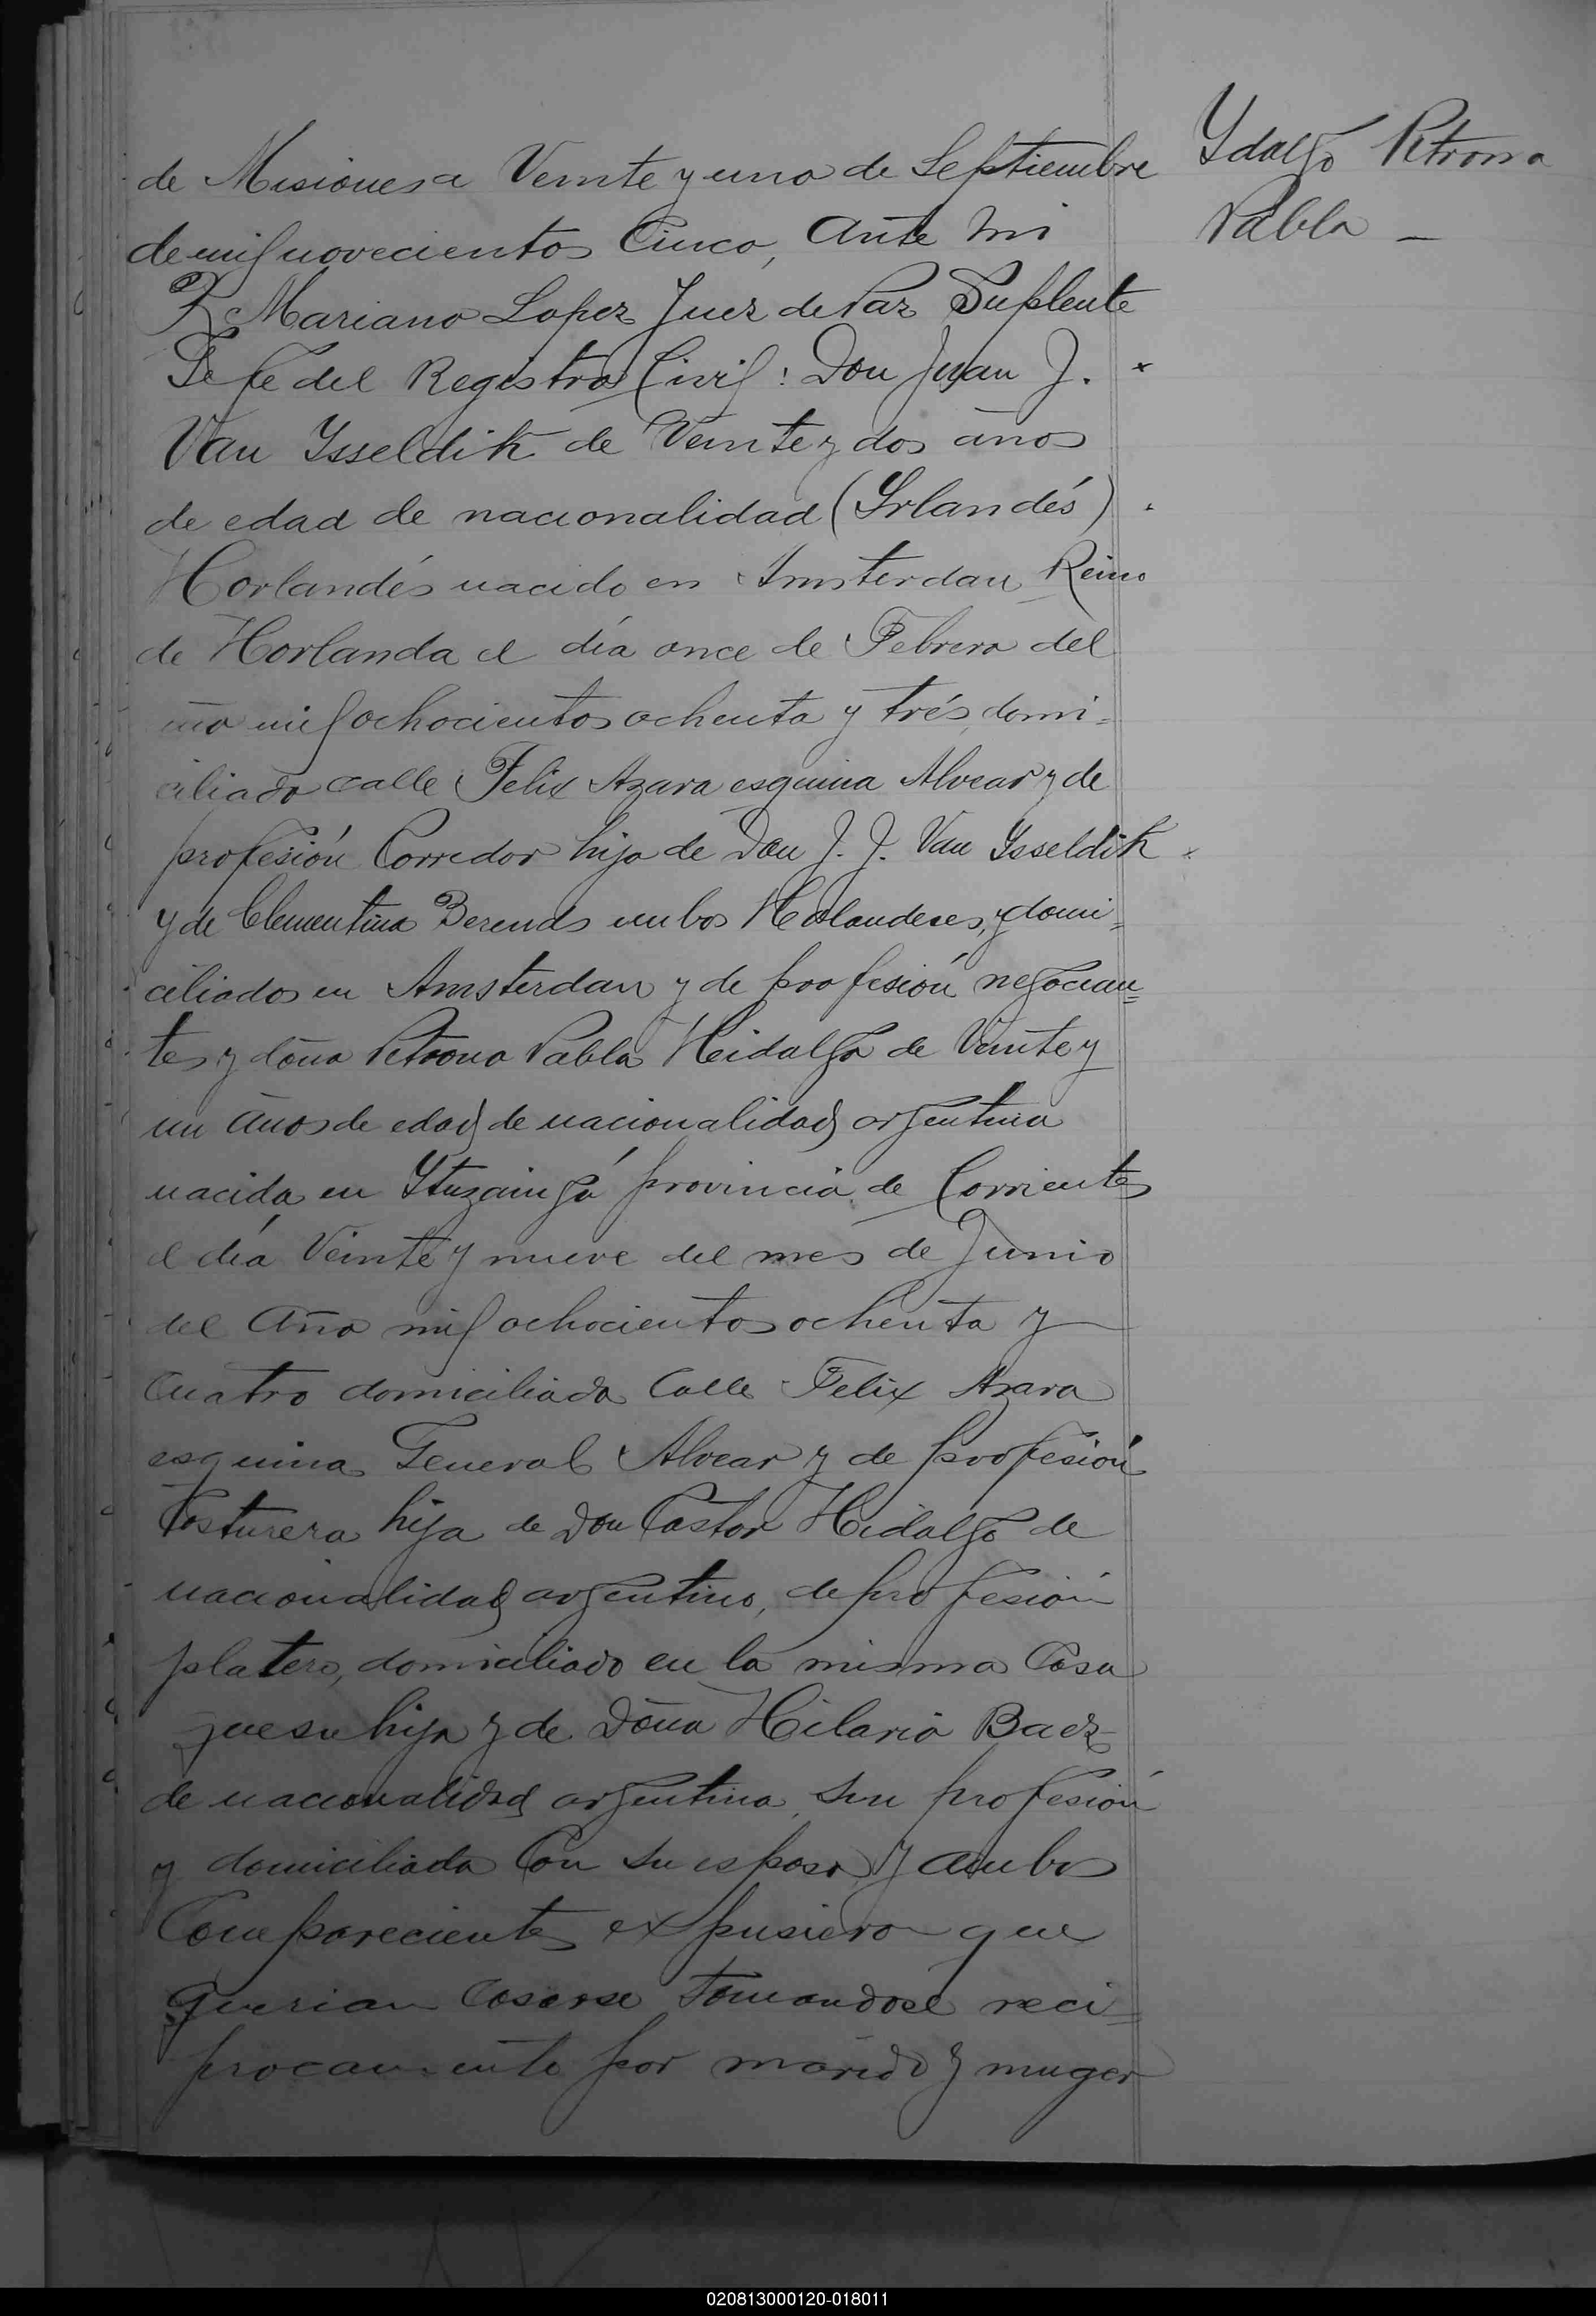 Ydalgo Petrona
Pabla —
de Misiones a Veinte y uno de Septiembre
de mil novecientos Cinco, Ante mi
Mariano Lopez Juez de Paz Suplente
Jefe del Registro Civil: Don Juan J.
Van Ysseldik de Veinte y dos años
de edad de nacionalidad (Yrlandés)
Horlandés nacido en Amsterdan Reino
de Horlanda el día once de Febrero del
año mil ochocientos ochenta y trés, domi-
ciliado calle Felix Azara esquina Alvear y de
profesión Corredor hijo de Don J. J. Van Ysseldik
y de Clementina Berends ambos Holandeses, y domi-
ciliados en Amsterdan y de profesión negocian=
tes y doña Petrona Pabla Hidalgo de Veinte y
un años de edad de nacionalidad argentina
nacida en Ytuzaingó provincia de Corrientes
el día Veinte y nueve del mes de Junio
del Año mil ochocientos ochenta y
cuatro domiciliada Calle Felix Azara
esquina General Alvear y de profesión
Costurera hija de Don Castor Hidalgo de
nacionalidad argentino, de profesión
platero, domiciliado en la misma Casa
que su hija y de Doña Hilaria Baez
de nacionalidad argentina, sin profesión
y domiciliada Con su esposo, y ambos
Comparecientes expusieron que
querian Casarse tomandose reci=
procamente por marido y muger
020813000120-018011